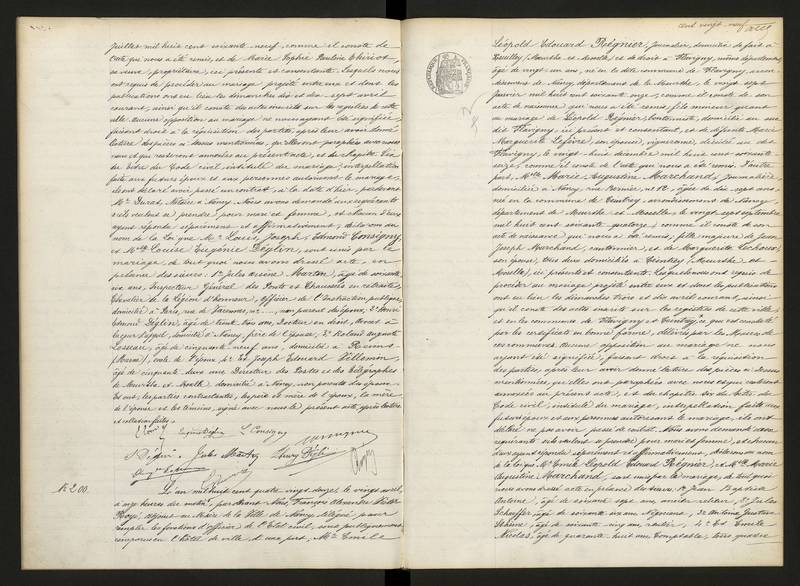 Juillet mil huit cent soixante-neuf, comme il conste de
l'acte qui nous a été remis, et de Marie Sophie Pauline Thiriot,
sa veuve, propriétaire, ici présente et consentante. Lesquels nous
ont requis de procéder au mariage projeté entre eux et dont les
publications ont eu lieu les dimanches dix et dix-sept avril
courant, ainsi qu'il conste des actes inscrits sur les registres de cette
ville. Aucune opposition au mariage ne nous ayant été signifiée,
faisant droit à la réquisition des parties, après leur avoir donné
lecture des pièces ci-dessus mentionnées, qu'elles ont paraphées avec
nous et qui resteront annexées au présent acte, et du chapitre six
du titre du Code civil intitulé du mariage, interpellation
faite aux futurs époux et aux personnes autorisant le mariage,
ils ont déclaré avoir passé un contrat, à la date d'hier, par devant
Me Durat, Notaire à Nancy. Nous avons demandé aux requérants
s'ils veulent se prendre pour mari et femme, et chacun d'eux
ayant répondu séparément et affirmativement, déclarons au
nom de la Loi que Mr Louis Joseph Edmond Consigny,
et Mlle Louise Eugénie Déglin, sont unis par le
mariage, de tout quoi nous avons dressé acte, en
présence des sieurs: 1° Jules Marton, âgé de soixante
six ans, Inspecteur Général des Ponts et Chaussées en retraite,
Chevalier de la Légion d'honneur, Officier de l'Instruction publique,
domicilié à Paris, rue de Varennes, non parent des époux, 2° Henri
Edmond Déglin, âgé de trente trois ans, Docteur en droit, Avocat à
la cour d'appel, domicilié à Nancy, frère de l'épouse, 3° Roland Auguste
âgé de cinquante neuf ans, domicilié à Reims
(Marne), oncle de l'épouse, 4° et Joseph Edouard Villemin,
âgé de cinquante deux ans Directeur des Postes et des Télégraphes
de Meurthe et Moselle domicilié à Nancy non parent des époux.
Et ont, les parties contractantes, les père et mère de l'époux, la mère
de l'épouse et les témoins, signé avec nous le présent acte, après lecture
et collation faites.
Eugénie Déglin L. Consigny
Consigny
Jules Marton Henry Déglin
N° 200
L'an mil huit cent quatre vingt douze, le vingt avril
à onze heures du matin, par devant Nous, François Alexandre
adjoint au Maire de la Ville de Nancy délégué pour
remplir les fonctions d'officier de l'Etat civil, sont publiquement
comparus en l'hôtel de ville d'une part, Mr Emile
cent vingt-neuf
RÉPUBLIQUE FRANÇAISE
Léopold Edouard Régnier, journalier, domicilié de fait à
Neuilly (Meurthe et Moselle) et de droit à Flavigny, même département,
âgé de vingt un ans, né en la dite commune de Flavigny, arron-
dissement de Nancy, département de la Meurthe, le vingt sept
janvier mil huit cent soixante onze, comme il conste de son
acte de naissance qui nous a été remis, fils mineur quant
au mariage de Léopold Régnier, cantonnier, domicilié au sus
dit Flavigny, ici présent et consentant, et de défunte Marie
Marguerite Lefèvre, son épouse, vigneronne, décédée au dit
Flavigny, le vingt-huit décembre mil huit cent soixante
seize, comme il conste de l'acte qui nous a été remis. D'autre
part, Mlle Marie Augustine Marchand, journalière
domiciliée à Nancy, rue Bernier, n° 12, âgée de dix sept ans,
née en la commune de Ceintrey, arrondissement de Nancy,
département de Meurthe et Moselle, le vingt sept septembre
mil huit cent soixante quatorze, comme il conste de son
acte de naissance qui nous a été remis, fille mineure de Jean
Joseph Marchand, cantonnier, et de Marguerite
son épouse, tous deux domiciliés à Ceintrey (Meurthe et
Moselle), ici présents et consentants. Lesquels nous ont requis de
procéder au mariage projeté entre eux et dont les publications
ont eu lieu les dimanches trois et dix avril courant, ainsi
qu'il conste des actes inscrits sur les registres de cette ville,
et en les communes de Flavigny et Ceintrey, ce qui est constaté
par les certificats en bonne forme, délivrés par les Maires de
ces communes. Aucune opposition au mariage ne nous
ayant été signifiée, faisant droit à la réquisition
des parties, après leur avoir donné lecture des pièces ci-dessus
mentionnées, qu'elles ont paraphées avec nous et qui resteront
annexées au présent acte, et du chapitre six du titre du
Code civil, intitulé du mariage, interpellation faite aux
futurs époux et aux personnes autorisant le mariage, ils ont
déclaré ne pas avoir passé de contrat. Nous avons demandé aux
requérants s'ils veulent se prendre pour mari et femme, et chacun
d'eux ayant répondu séparément et affirmativement, déclarons au nom
de la loi que Mr Emile Léopold Edouard Régnier et Mlle Marie
Augustine Marchand, sont unis par le mariage, de tout quoi
nous avons dressé acte en présence des sieurs: 1° Jean Baptiste
Antoine, âgé de soixante sept ans, ancien 2° Jules
Schaeffer, âgé de soixante six ans, négociant, 3° Antoine Gustave
âgé de soixante cinq ans, rentier, 4° Et Emile
Nicolas, âgé de quarante huit ans, Comptable, tous quatre